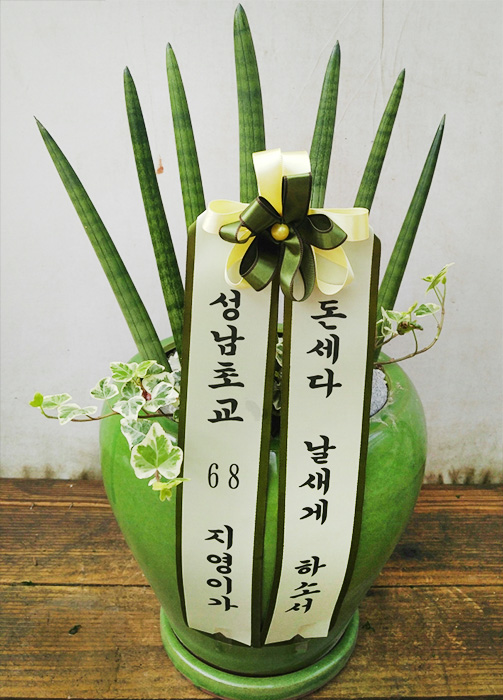 돈세다 날새게 하소서
성남초교 68 지영이가